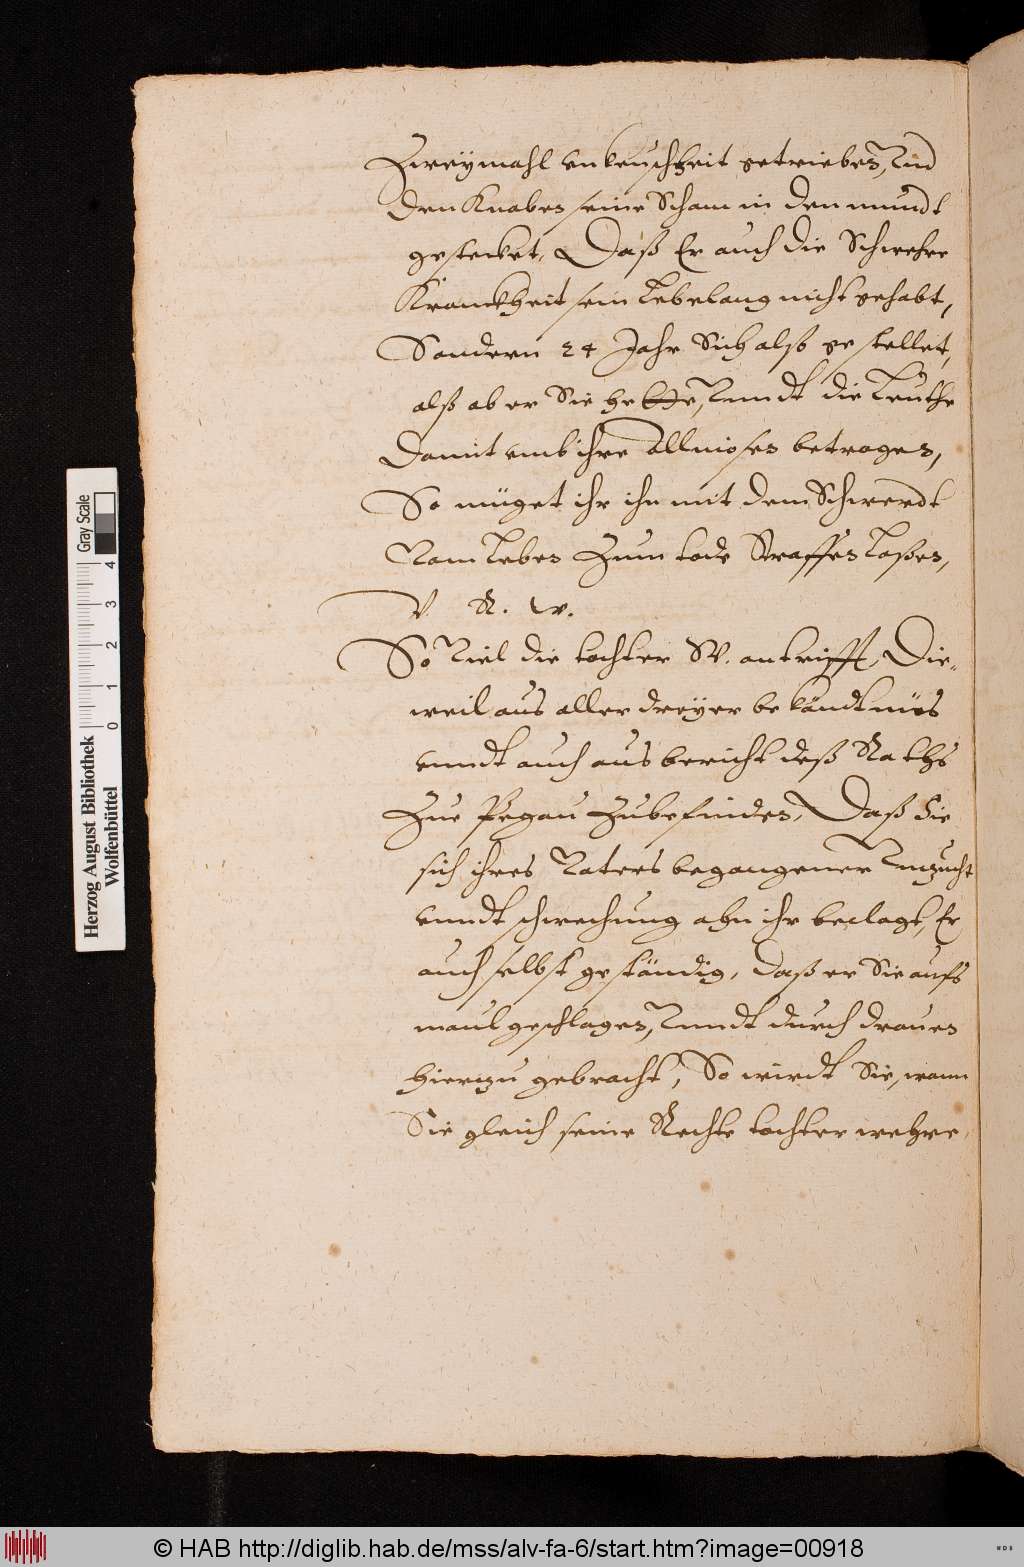 Zweymahl unkeuschheit getrieben, Und
den Knaben seine Scham in den mundt
gestecket, Daß Er auch die Schwehre
Kranckheit sein Lebelang nicht gehabt,
Sondern 24 Jahr Sich alß gestellet,
alß ob er Sie hette, Unndt die Leuthe
Damit umb ihre Allmosen betrogen,
So müget ihr ihn mit dem Schwerdt
Vom Leben Zum tode Straffen Laßen,
V. R. W.
So Viel die tochter W. antrifft, Die-
weil aus aller dreÿer bekändtnüs
unndt auch aus bericht deß Raths
Zue Pegau Zubefinden, Daß Sie
sich ihres Vaters begangener Unzucht
unndt schwechung ahn ihr beclagt, Er
auch selbst geständig, daß er Sie aufs
maul geschlagen, Unndt durch drauen
hierzu gebracht, So wirdt Sie, wann
Sie gleich seine Rechte tochter wehre,
Herzog August Bibliothek
Wolfenbüttel
0 1 2 3 4
Gray Scale
© HAB http://diglib.hab.de/mss/alv-fa-6/start.htm?image=00918
WDB